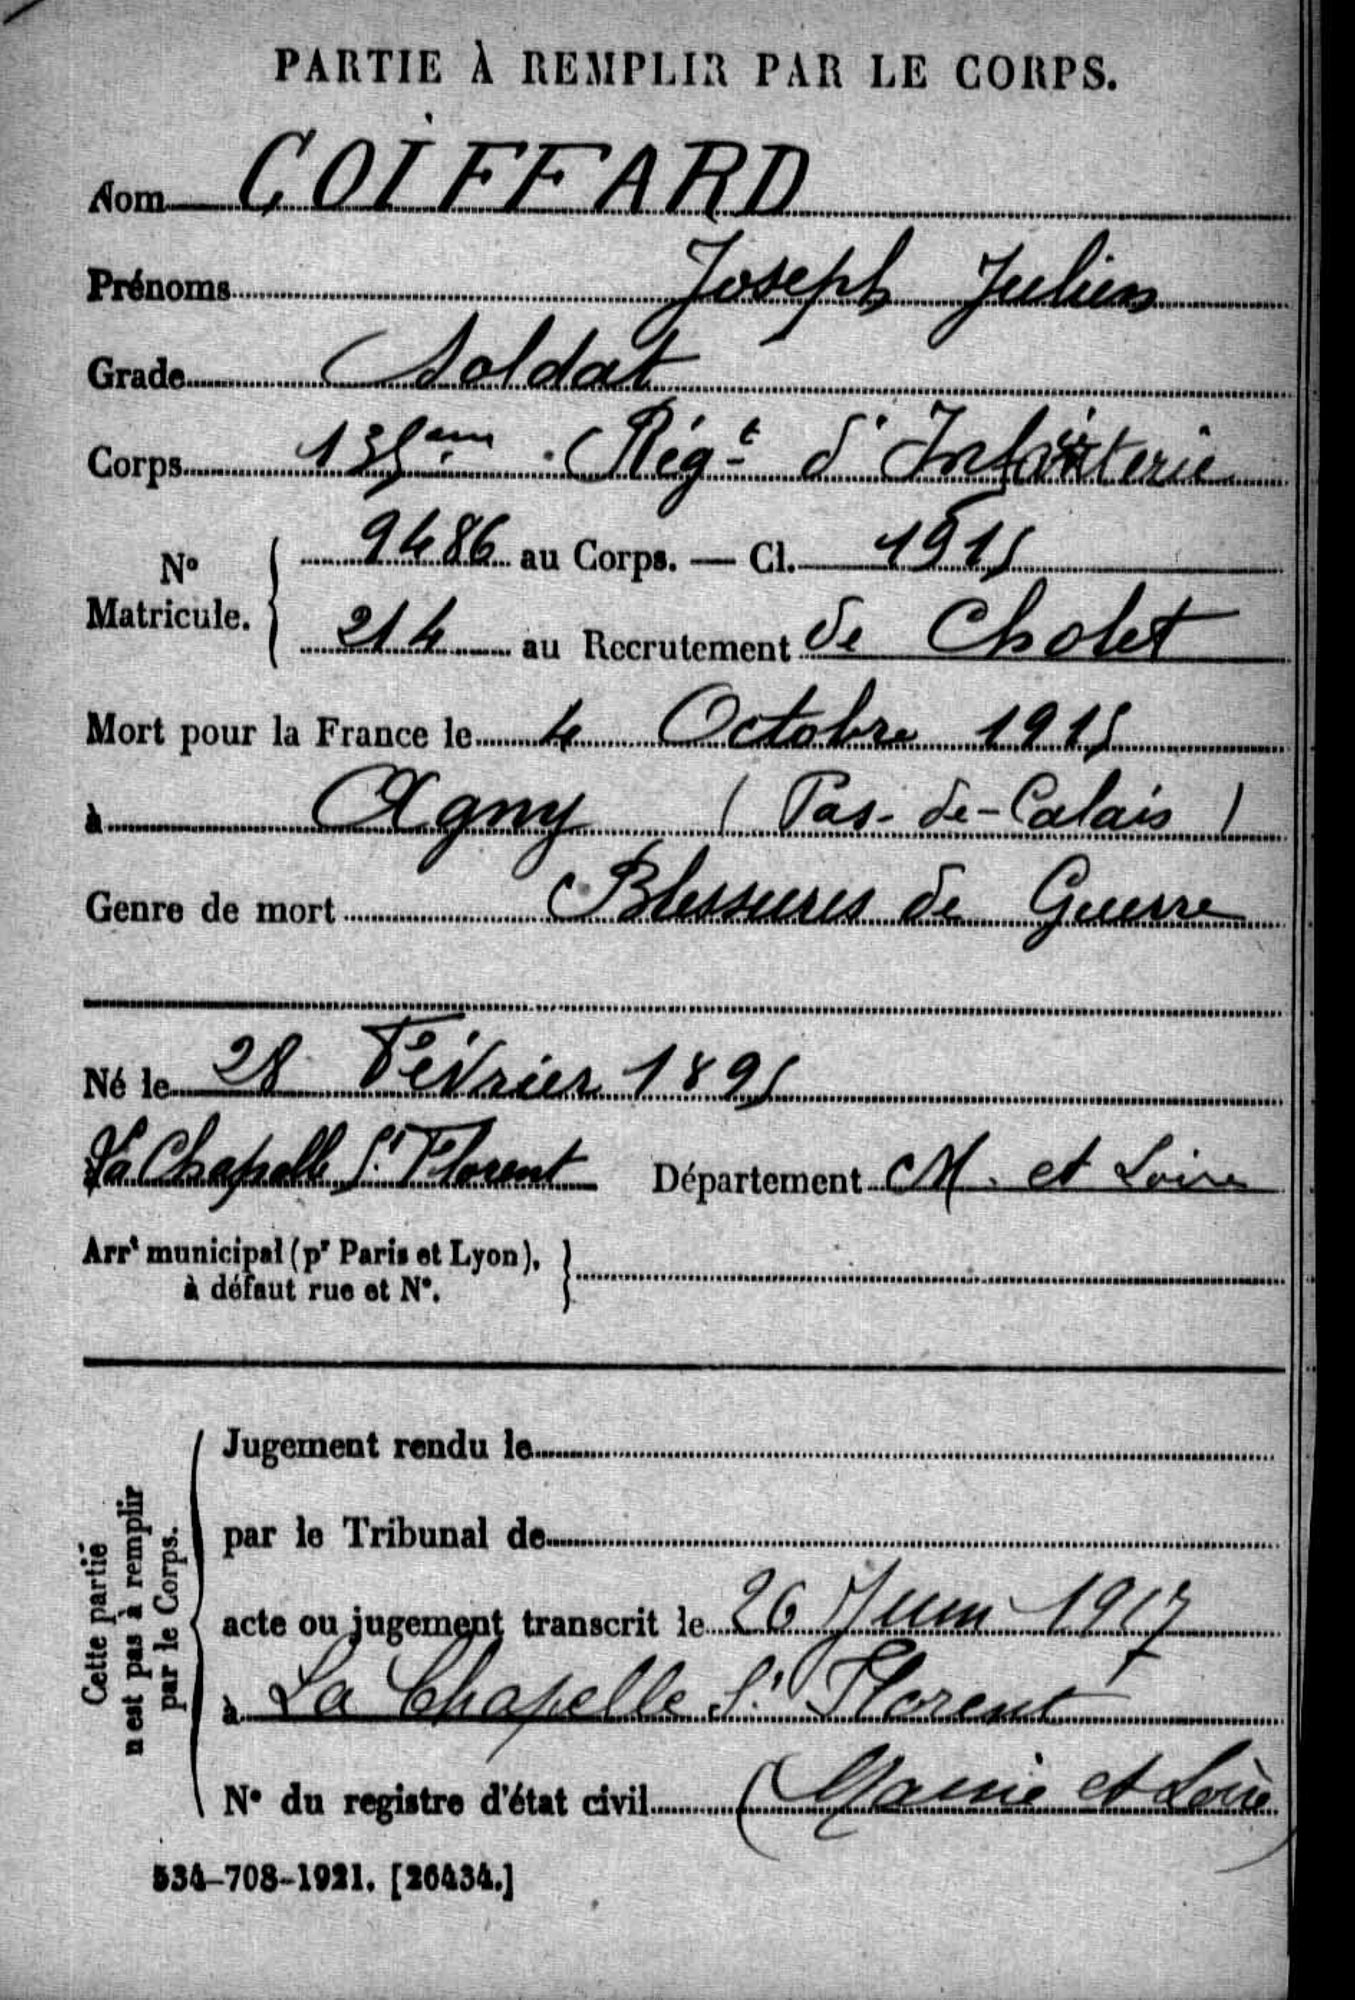 PARTIE À REMPLIR PAR LE CORPS.
Nom COIFFARD
Prénoms Joseph Julien
Grade Soldat
Corps 135ème Régt d'Infanterie
N° Matricule. { 9486 au Corps. — Cl. 1915
214 au Recrutement de Cholet
Mort pour la France le 4 Octobre 1915
à Agny (Pas-de-Calais)
Genre de mort Blessures de Guerre
Né le 28 Février 1895
La Chapelle St Florent Département M. et Loire
Arrt municipal (pr Paris et Lyon), à défaut rue et N°. }
Cette partie n'est pas à remplir par le Corps.
Jugement rendu le
par le Tribunal de
acte ou jugement transcrit le 26 Juin 1917
à La Chapelle St Florent
N° du registre d'état civil (Maine et Loire)
534-708-1921. [26434.]